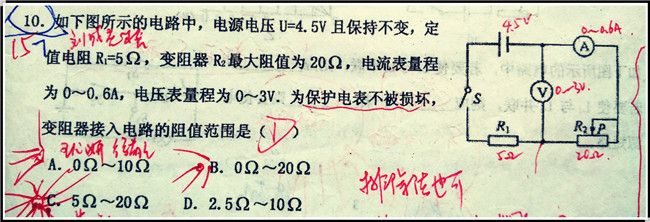 10. 如下图所示的电路中，电源电压 U=4.5V 且保持不变，定
值电阻 R₁=5Ω，变阻器 R₂最大阻值为 20Ω，电流表量程
为 0～0.6A，电压表量程为 0～3V. 为保护电表不被损坏，
变阻器接入电路的阻值范围是（D）
A. 0Ω～10Ω B. 0Ω～20Ω
C. 5Ω～20Ω D. 2.5Ω～10Ω
排除法也可
4.5V
0~0.6A
A
V
0~3V
S
R₁
5Ω
R₂
P
20Ω
15